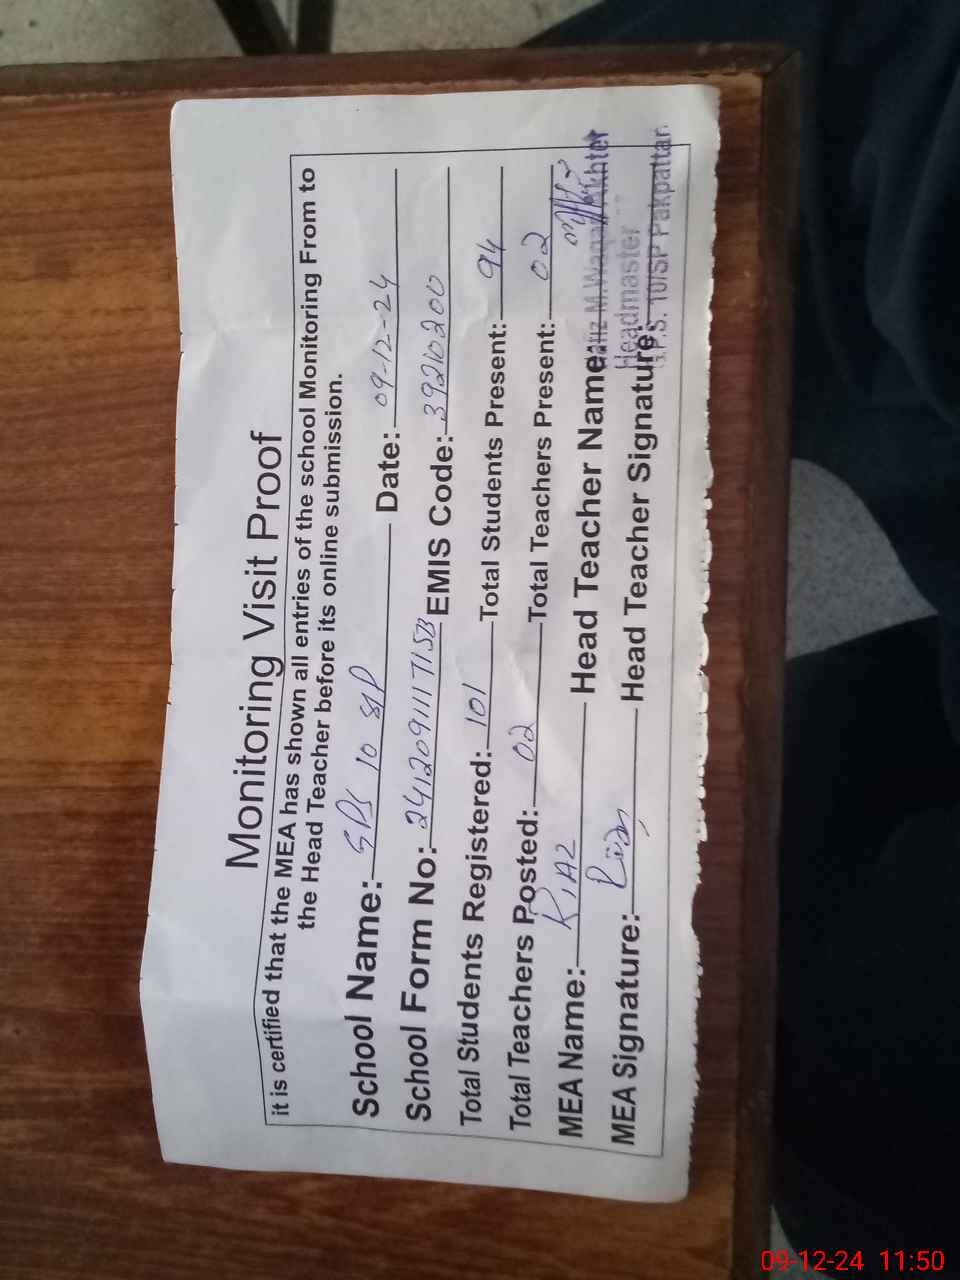 Monitoring Visit Proof
it is certified that the MEA has shown all entries of the school Monitoring From to
the Head Teacher before its online submission.
School Name: GPS 10 SP Date: 09-12-24
School Form No: EMIS Code: 39210200
Total Students Registered: 101 Total Students Present: 94
Total Teachers Posted: 02 Total Teachers Present: 02
MEA Name: RIAZ Head Teacher Name: Hafiz M.Waqar Akhter
Headmaster
MEA Signature: Head Teacher Signature: G.P.S. 10/SP Pakpattan
09-12-24 11:50